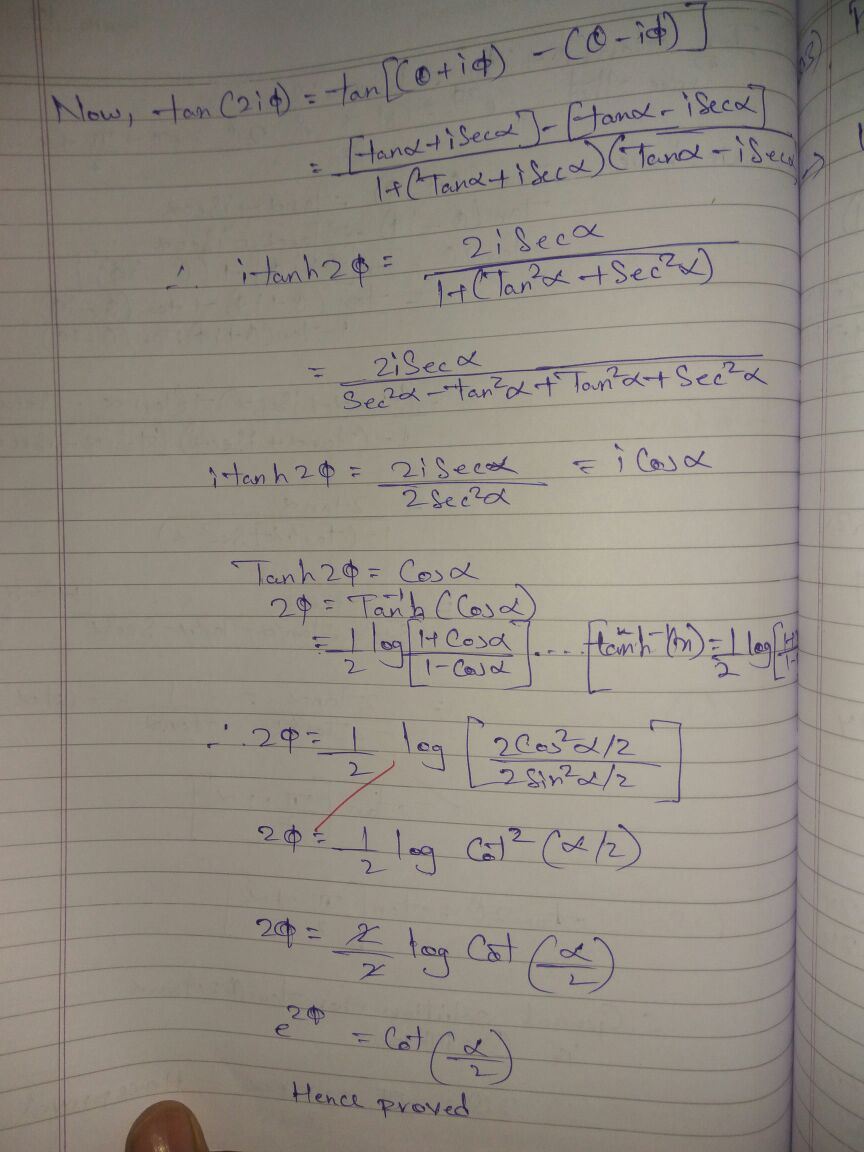 Now, tan(2iφ) = tan[(θ+iφ) - (θ-iφ)]
= [tanα + iSecα] - [tanα - iSecα] / 1+(Tanα + iSecα)(Tanα - iSecα
∴ itanh2φ = 2iSecα / 1+(Tan²α + Sec²α)
= 2iSecα / Sec²α - tan²α + Tan²α + Sec²α
itanh2φ = 2iSecα / 2Sec²α = iCosα
Tanh2φ = Cosα
2φ = Tan⁻¹h (Cosα)
= 1/2 log [1+Cosα / 1-Cosα] .... [tanh⁻(x) = 1/2 log[
∴ 2φ = 1/2 log [2Cos²α/2 / 2Sin²α/2]
2φ = 1/2 log Cot² (α/2)
2φ = 2/2 log Cot (α/2)
e^2φ = Cot (α/2)
Hence proved